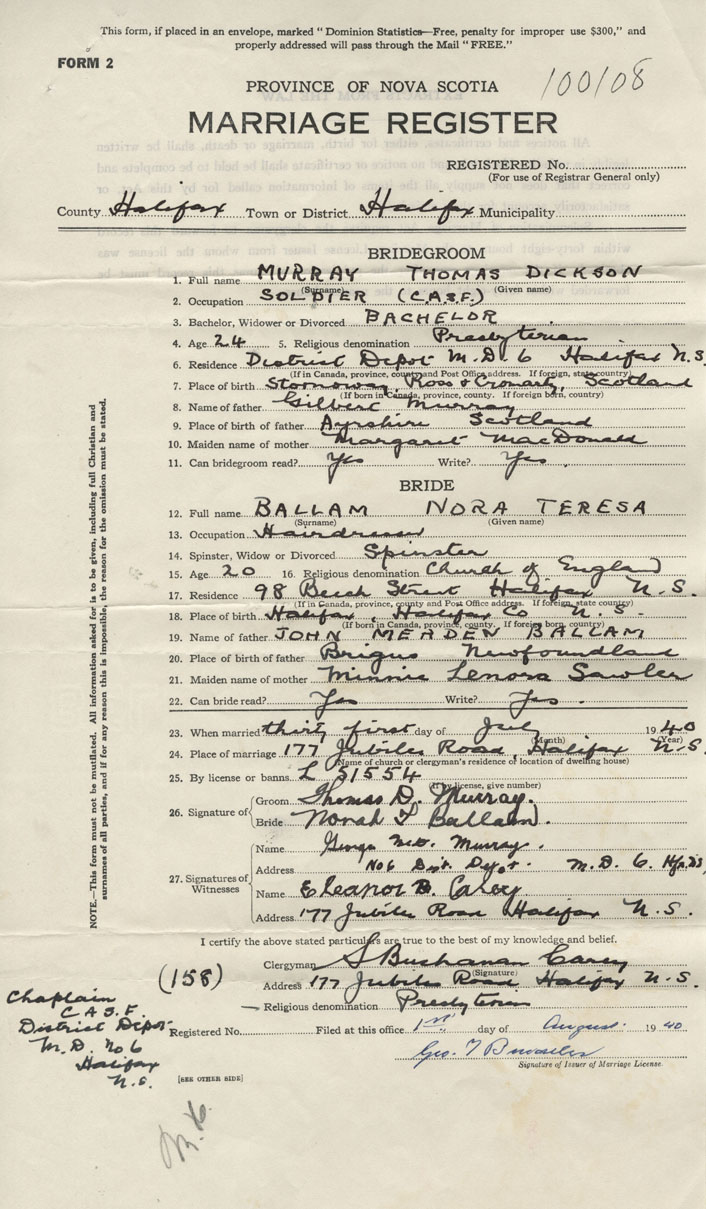 This form, if placed in an envelope, marked "Dominion Statistics—Free, penalty for improper use $300," and
properly addressed will pass through the Mail "FREE."
FORM 2
100108
PROVINCE OF NOVA SCOTIA
MARRIAGE REGISTER
REGISTERED No.
(For use of Registrar General only)
County Halifax Town or District Halifax Municipality
BRIDEGROOM
1. Full name MURRAY THOMAS DICKSON
(Surname) (Given name)
2. Occupation SOLDIER (C.A.S.F.)
3. Bachelor, Widower or Divorced BACHELOR
4. Age 24 5. Religious denomination Presbyterian
6. Residence District Depot M.D. 6 Halifax N.S.
(If in Canada, province, county and Post Office address. If foreign, state country)
7. Place of birth Stornoway, Ross & Cromarty, Scotland
(If born in Canada, province, county. If foreign born, country)
8. Name of father Gilbert Murray
9. Place of birth of father Ayrshire Scotland
10. Maiden name of mother Margaret MacDonald
11. Can bridegroom read? Yes Write? Yes.
BRIDE
12. Full name BALLAM NORA TERESA
(Surname) (Given name)
13. Occupation Hairdresser
14. Spinster, Widow or Divorced Spinster
15. Age 20 16. Religious denomination Church of England
17. Residence 98 Beech Street Halifax N.S.
(If in Canada, province, county and Post Office address. If foreign, state country)
18. Place of birth Halifax, Halifax Co N.S.
(If born in Canada, province, county. If foreign born, country)
19. Name of father JOHN MEADEN BALLAM
20. Place of birth of father Brigus Newfoundland
21. Maiden name of mother Minnie Lenora Sawler
22. Can bride read? Yes Write? Yes.
23. When married thirty first day of July 1940
(Month) (Year)
24. Place of marriage 177 Jubilee Road, Halifax N.S.
(Name of church or clergyman's residence or location of dwelling house)
25. By license or banns L 51554
(If by license, give number)
26. Signature of
Groom Thomas D. Murray.
Bride Norah T Ballam.
27. Signatures of Witnesses
Name George Murray.
Address No 6 Dis. Depot. M.D. 6. Hfx NS
Name Eleanor B. Carey
Address 177 Jubilee Road Halifax N.S.
I certify the above stated particulars are true to the best of my knowledge and belief.
Clergyman S Buchanan Carey
(Signature)
(158)
Address 177 Jubilee Road Halifax N.S.
Religious denomination Presbyterian
Chaplain
C A S F.
District Depot
M.D. No 6
Halifax
N.S.
Registered No. Filed at this office 1st day of August. 1940
Geo. T
Signature of Issuer of Marriage License.
[SEE OTHER SIDE]
NOTE.—This form must not be mutilated. All information asked for is to be given, including full Christian and
surnames of all parties, and if for any reason this is impossible, the reason for the omission must be stated.